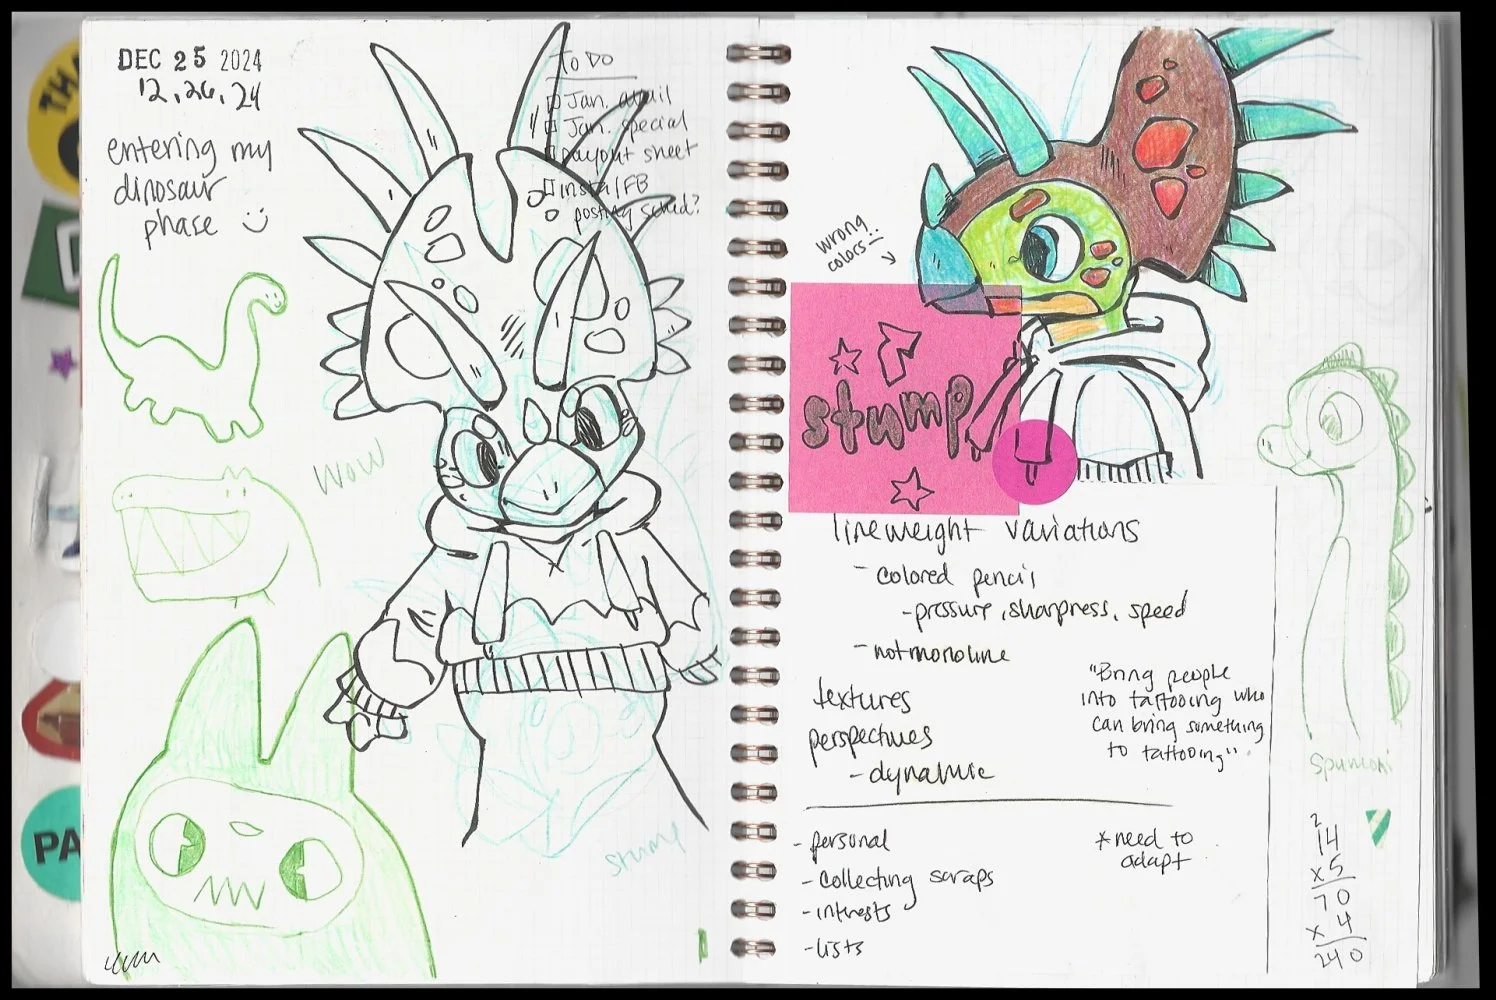 DEC 25 2024
12.26.24
entering my
dinosaur
phase
To Do
Jan. avail
Jan. special
payout sheet
insta/FB
posting sched?
wow
stump
wrong
colors..
stump
lineweight variations
- colored pencil
- pressure, sharpness, speed
- not monoline
textures
perspectives
- dynamic
"Bring people
into tattooing who
can bring something
to tattooing"
- personal
- collecting scraps
- interests
- lists
* need to
adapt
Spumoni
2
14
x5
70
x 4
240
PA